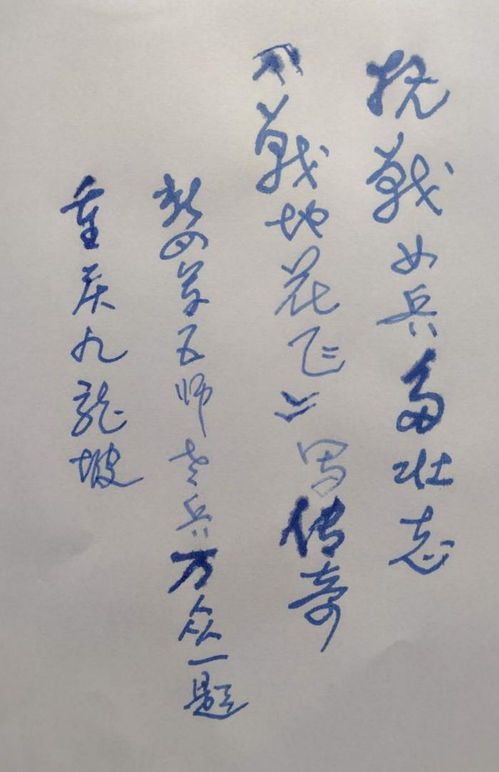 抗战女兵多壮志
《战地花飞》写传奇
新四军五师老兵万众一题
重庆九龙坡